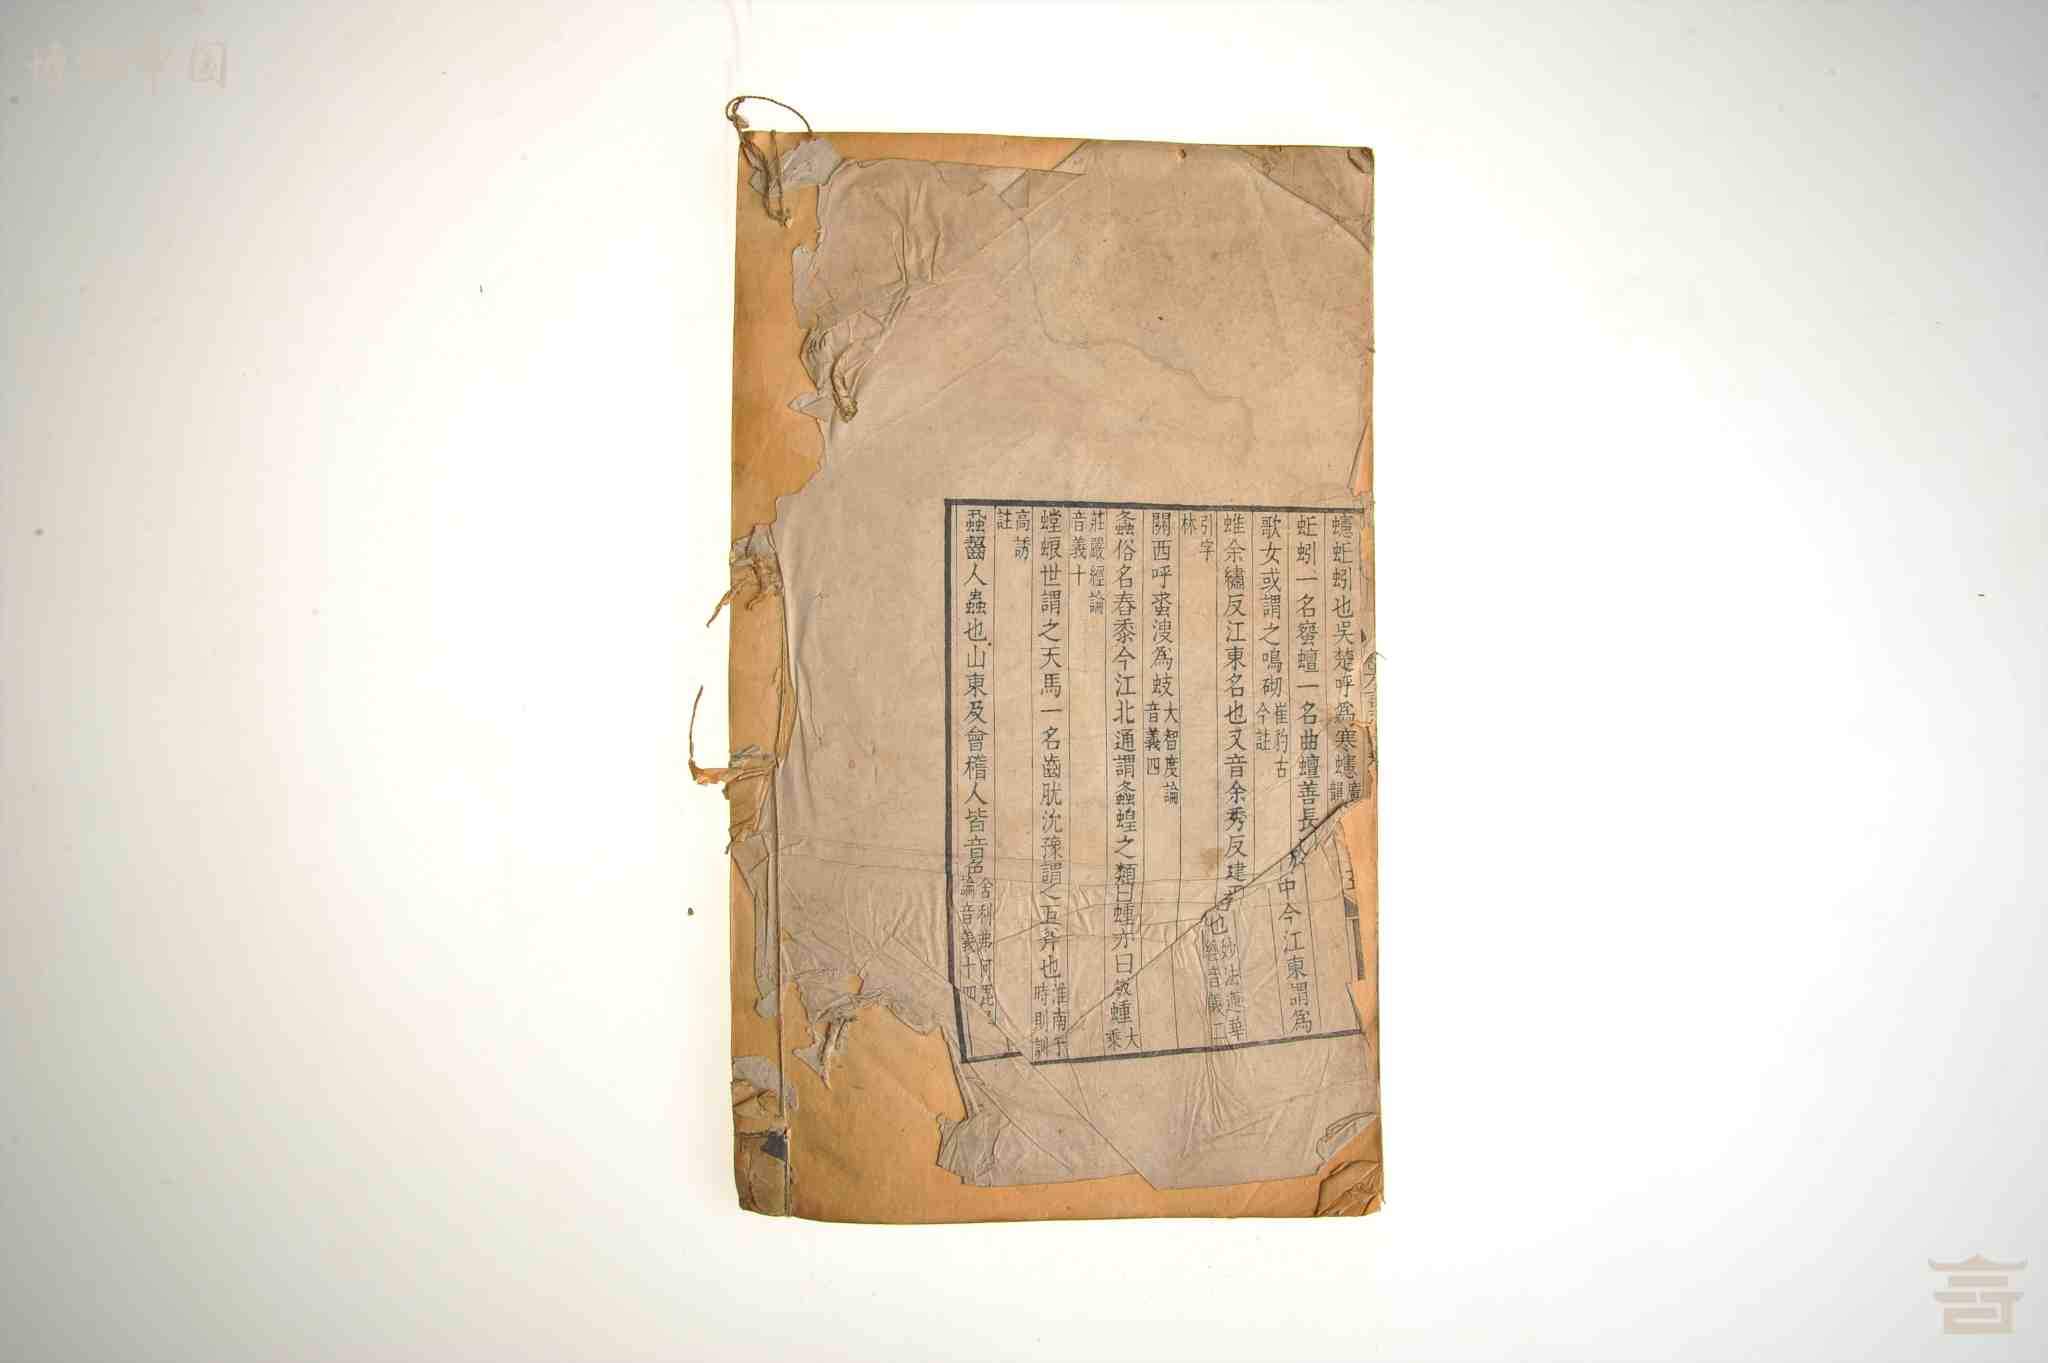 蟪蚯蚓也吳楚呼爲寒蟪廣韻
蚯蚓一名蜜蟺一名曲蟺善長於中今江東謂爲
歌女或謂之鳴砌崔豹古今註
蜼余繡反江東名也又音余秀反建平名也妙法蓮華經音義二
引字林
關西呼蛩溲爲蚑大智度論音義四
螽俗名舂黍今江北通謂螽蝗之類曰蝩亦曰簸蝩大乘
莊嚴經論音義十
螳蜋世謂之天馬一名齒肬沇豫謂之巨斧也淮南子時則訓
高誘註
蝨齧人蟲也山東及會稽人皆音色舍利弗阿毘曇論音義十四